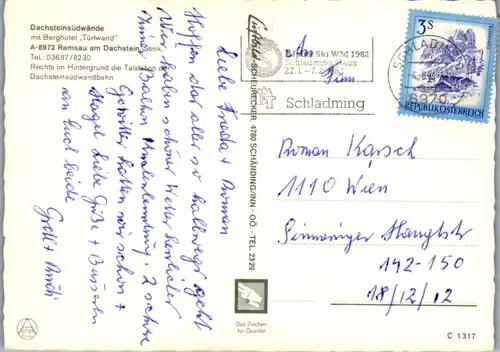 Dachsteinsüdwände
mit Berghotel „Türlwand"
A-8972 Ramsau am Dachstein, Stmk.
Tel.: 03687/8230
Rechts im Hintergrund die Talstation der
Dachsteinsüdwandbahn
Liebe Trada + Roman
Hoffen daß aller so halbwegs geht
Wir haben schönes Wetter herrliches
Zimmer Balkon 2 schöne
Gewitter hatten wir schon +
Hagel Liebe Grüße + Busserln
an Euch beide
Gretl + Rudi
SCHEURECKER, 4780 SCHÄRDING/INN - OÖ. - TEL. 2329
Das Zeichen
für Qualität
Ski WM 1982
Schladming/Haus
Schladming
SCHLADMING
8970
3S
REPUBLIK ÖSTERREICH
An
Fam
Roman Karsch
1110 Wien
Simmeringer Hauptstr
142-150
18/12/12
C 1317